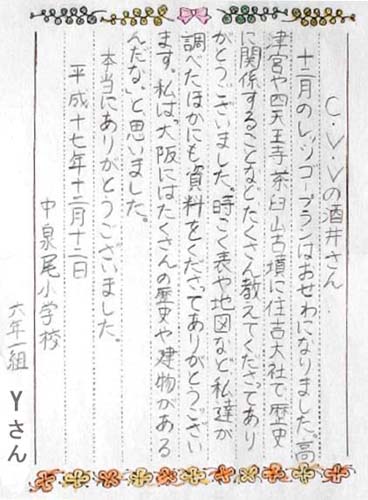 C・V・Vの酒井さん
十二月のレッツゴープランはおせわになりました。高
津宮や四天王寺茶臼山古墳に住吉大社で歴史
に関係することなどたくさん教えてくださってあり
がとうございました。時こく表や地図など私達が
調べたほかにも資料をくださってありがとうござい
ます。私は「大阪にはたくさんの歴史や建物がある
んだな」と思いました。
本当にありがとうございました。
平成十七年十二月十二日
中泉尾小学校
六年一組 Yさん